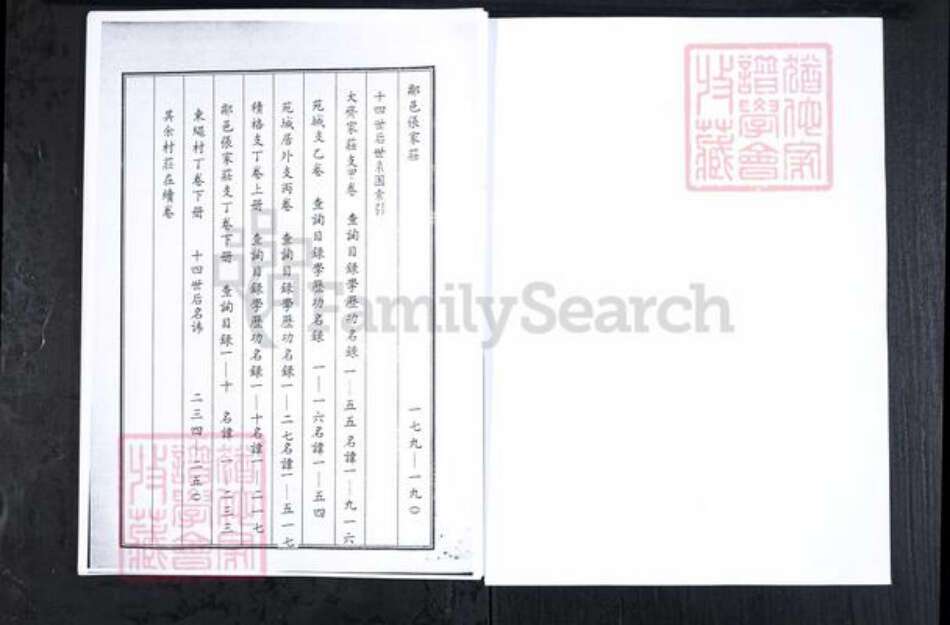 鄰邑張家莊 一七九—一九〇
十四世后世系图索引
大齊家莊支甲卷 查詢目録學歷功名録一—五五 名諱一—九一六
苑城支乙卷 查詢目録學歷功名録 一—一六名諱一—五四
苑城居外支丙卷 查詢目録學歷功名録一—二七名諱一—五一七
積格支丁卷上册 查詢目録學歷功名録一—十名諱一—二一七
鄰邑張家莊支丁卷下册 查詢目録一—十 名諱一—二三三
東鄒村丁卷下册 十四世后名諱 二三四—二五〇
其余村莊在續卷
猶他家譜學會收藏
猶他家譜學會收藏
FamilySearch